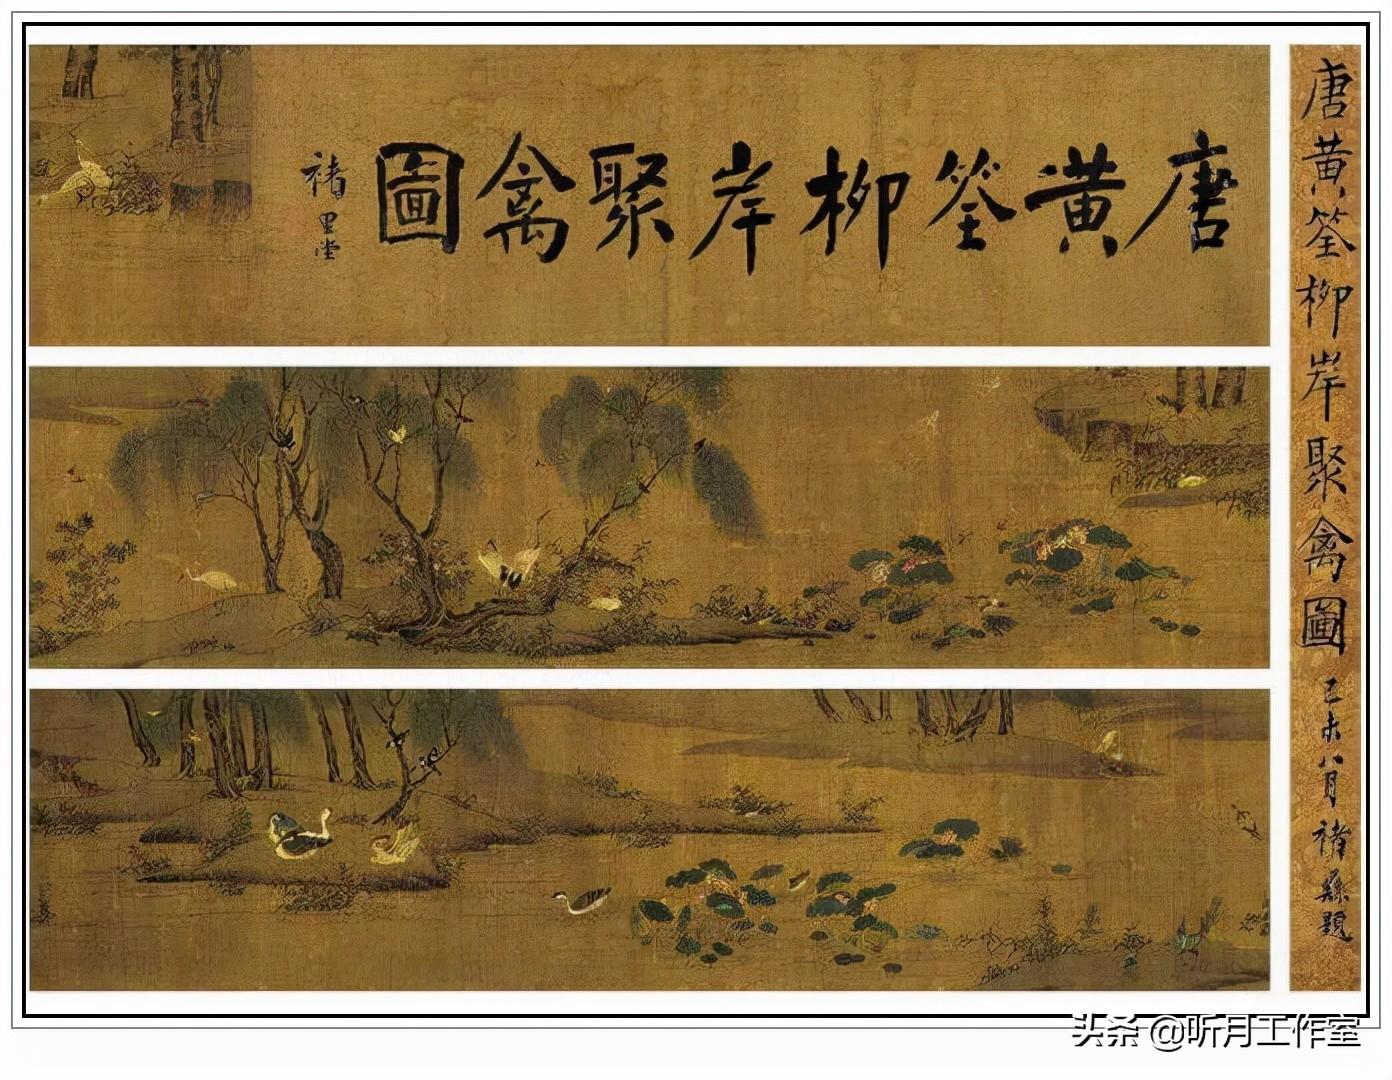 唐黄筌柳岸聚禽圖
褚
唐黄筌柳岸聚禽圖 己未八月褚題
头条 @听月工作室